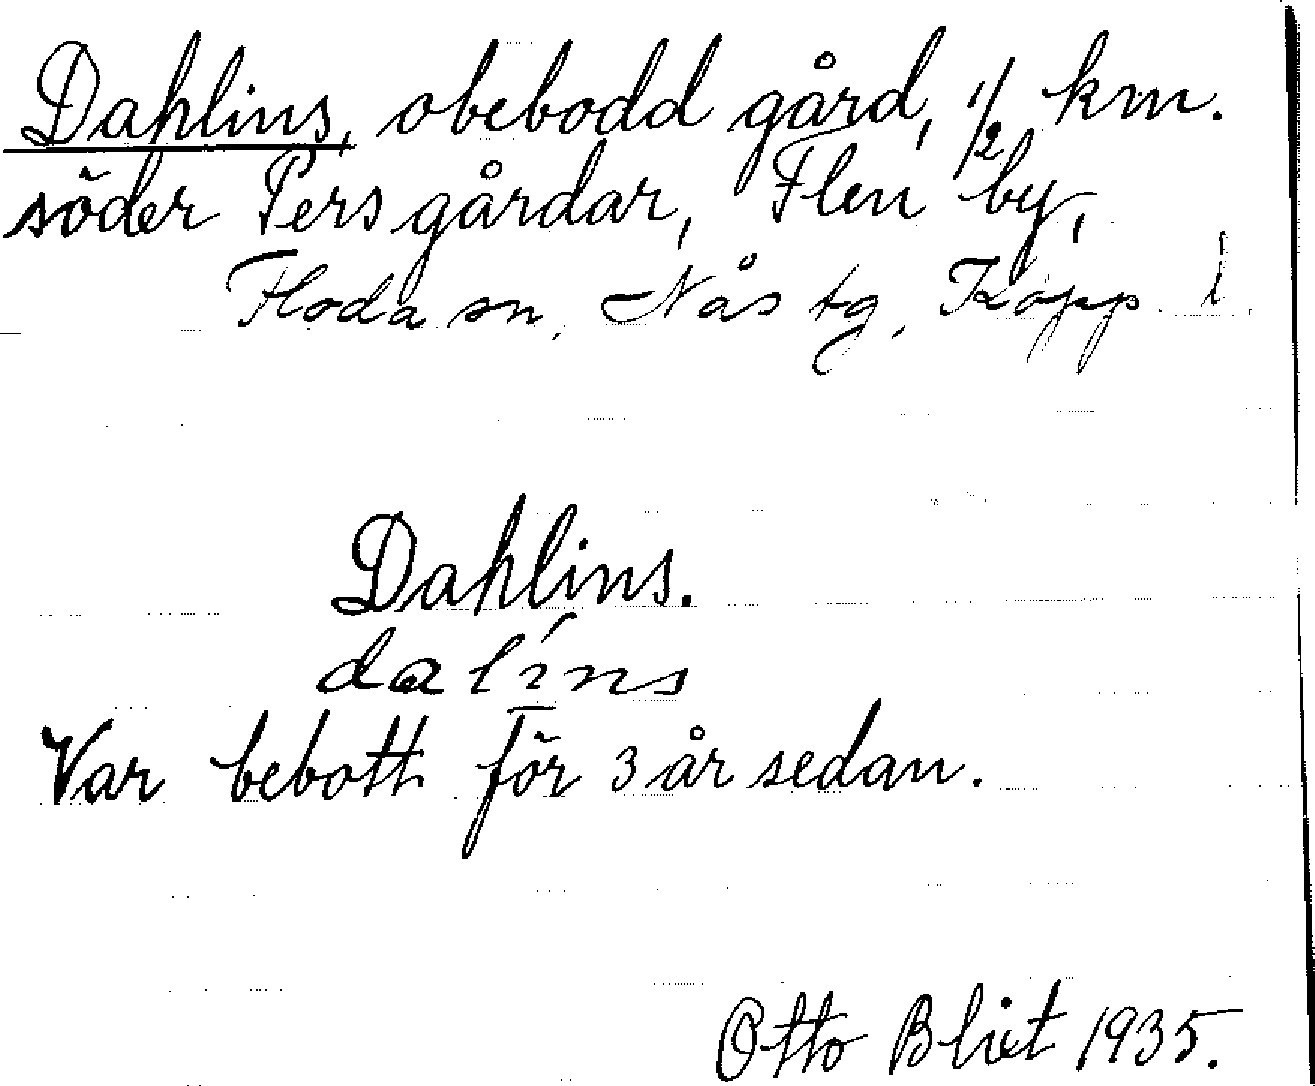 Dahlins, obebodd gård, 1/2 km.
söder Persgårdar, Flen by,
Floda sn, Nås tg, Kopp. l.
Dahlins.
dalíns
Var bebott för 3 år sedan.
Otto Blixt 1935.